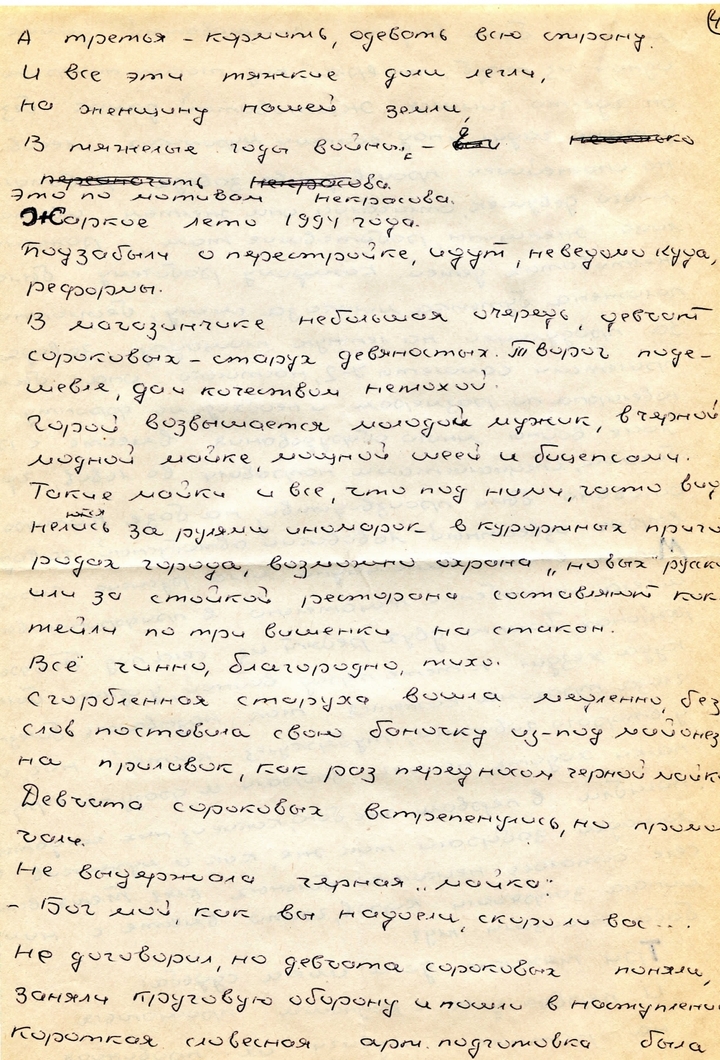 4
А третья - кормить, одевать всю страну.
И все эти тяжкие доли легли,
на женщину нашей земли,
В тяжелые годы войны, -
это по мотивам Некрасова.
Жаркое лето 1994 года.
Подзабыли о перестройке, идут, неведомо куда,
реформы.
В магазинчике небольшая очередь, девчат
сороковых - старух девяностых. Творог поде-
шевле, да и качеством неплохой.
Горой возвышается молодой мужик, в черной
модной майке, мощной шеей и бицепсами.
Такие майки и все, что под ними, часто вид
нелись за рулями иномарок в курортных приго
родах города, возможно охрана „новых" русск
или за стойкой ресторана составляют кок-
тейли по три вишенки на стакан.
Всё чинно, благородно, тихо.
Сгорбленная старуха вошла медленно, без
слов поставила свою баночку из-под майонез
на прилавок, как раз перед носом черной майк
Девчата сороковых встрепенулись, но промо
чали.
Не выдержала черная „майка".
- Бог мой, как вы надоели, скоро ли вас ...
Не договорил, но девчата сороковых поняли,
заняли круговую оборону и пошли в наступлени
короткая словесная арт. подготовка была